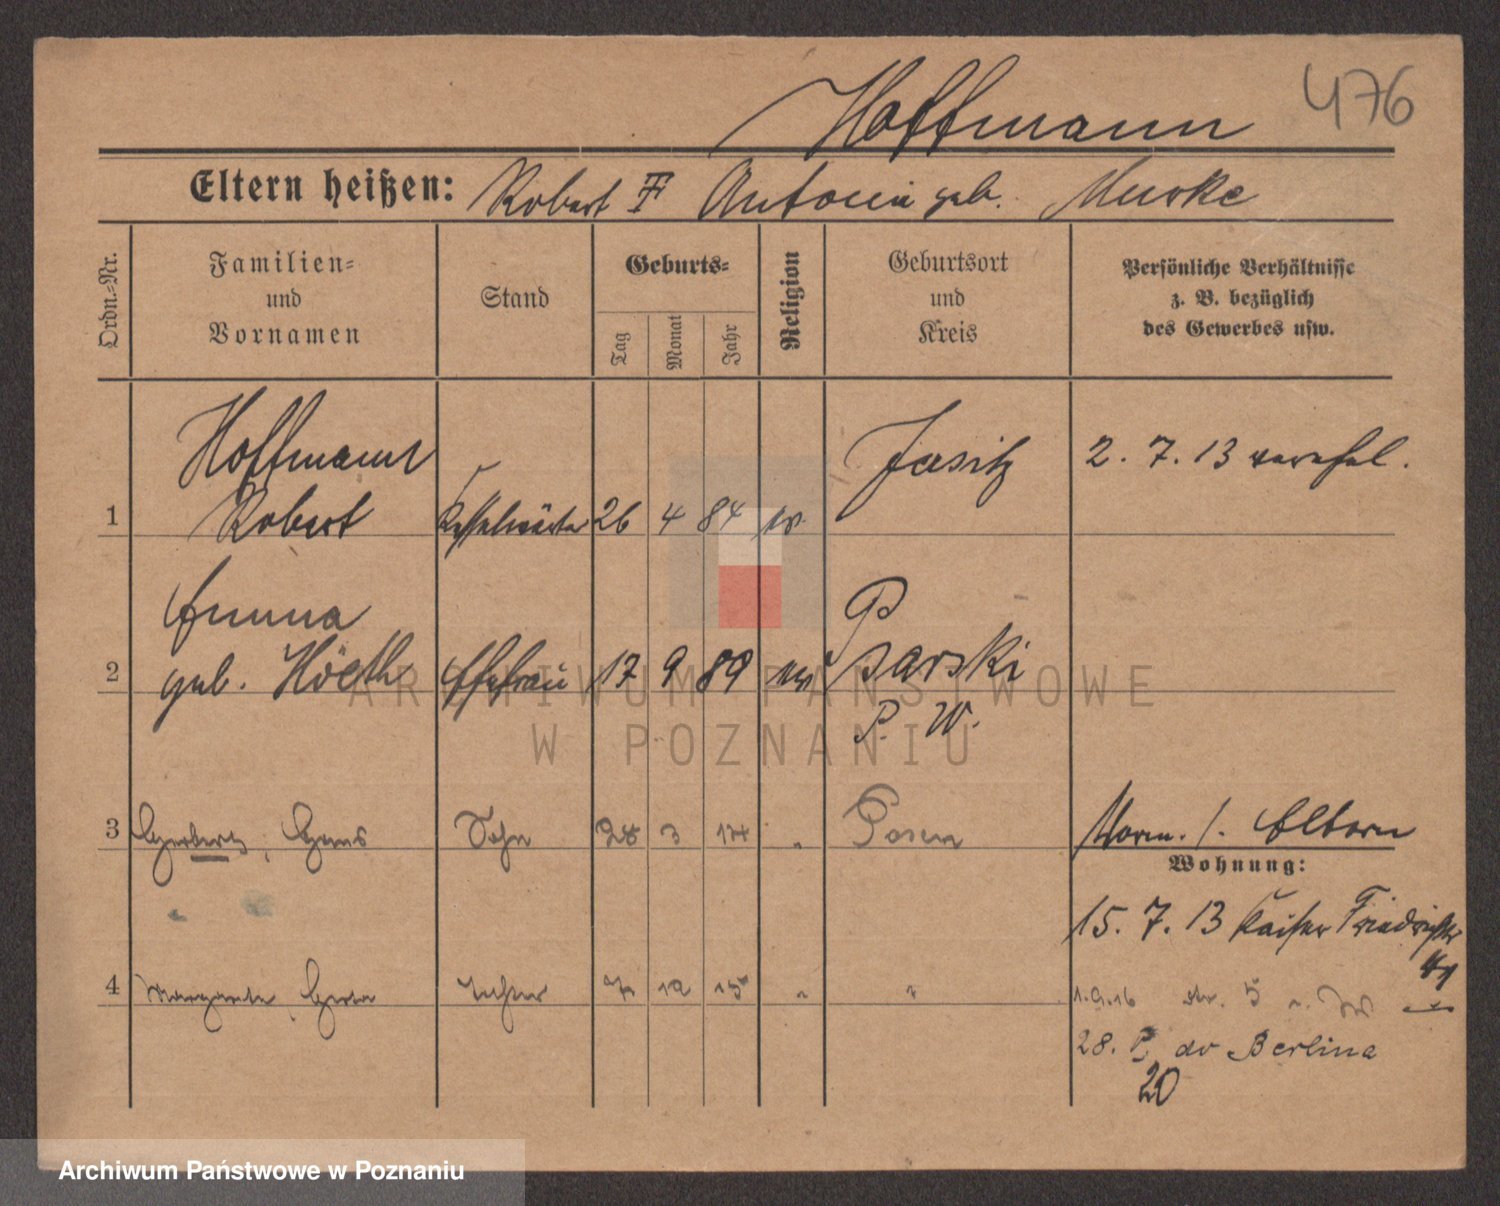 476
Hoffmann
Eltern heißen: Robert Antonin geb. Muske
Ordn.-Nr.
Familien-
und
Vornamen
Stand
Geburts-
Tag
Monat
Jahr
Religion
Geburtsort
und
Kreis
Persönliche Verhältnisse
z. B. bezüglich
des Gewerbes usw.
Hoffmann
Jasitz
2. 7. 13 verehel.
1
Robert
26 4 84 ev.
Emma
2
geb. Höeth
Ehefrau
17 9 89 ev
Psarski
P. W.
3
Herbert, Hans
Sohn
28 3 14
"
Posen
Norm. /. Eltern
Wohnung:
15. 7. 13 Kaiser Friedrichstr
4
Margarete Herta
Tochter
7 12 15
"
"
1.9.16 str. 5
28. do Berlina
20
ARCHIWUM PAŃSTWOWE
W POZNANIU
Archiwum Państwowe w Poznaniu